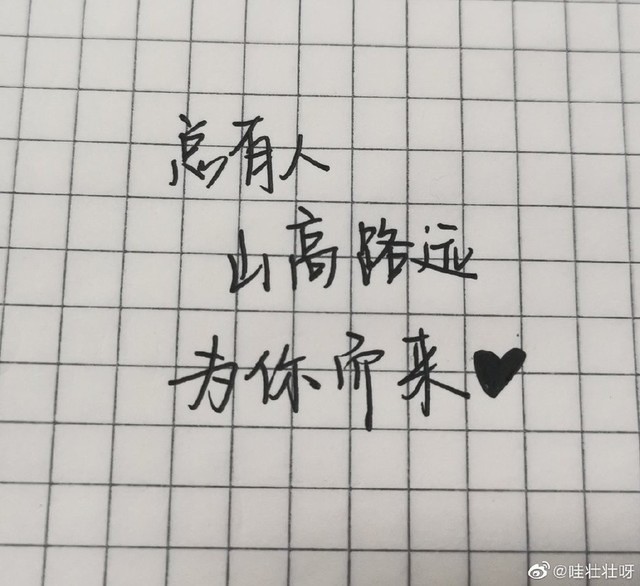 总有人
山高路远
为你而来♥
@哇壮壮呀